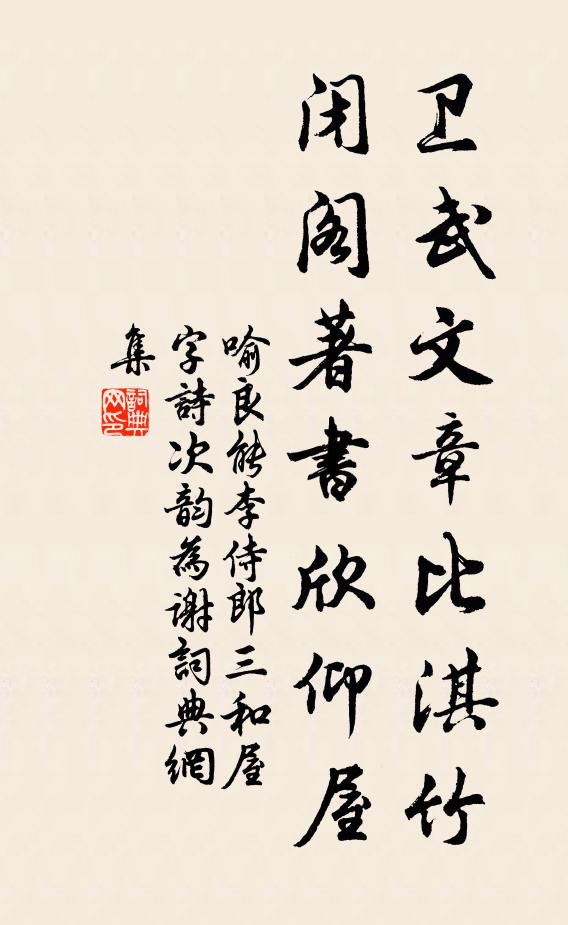 卫武文章比淇竹
闭阁著書欣仰屋
喻良能李侍郎三和屋
字詩次韵為谢詞典網
集
詞典
网印